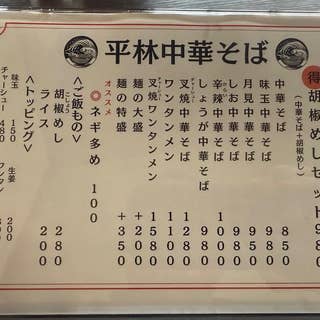 平林中華そば
得 胡椒めしセット 980
(中華そば+胡椒めし)
中華そば 850
味玉中華そば
月見中華そば
中華そば
辛辣中華そば
しょうが中華そば
叉焼中華そば
ワンタンメン
叉焼ワンタンメン
麺の大盛
麺の特盛 +350
オススメ
◎ネギ多め 100
<ご飯もの>
胡椒めし 280
ライス 200
<トッピング>
味玉 150
チャーシュー 480
生姜 200
ワンタン